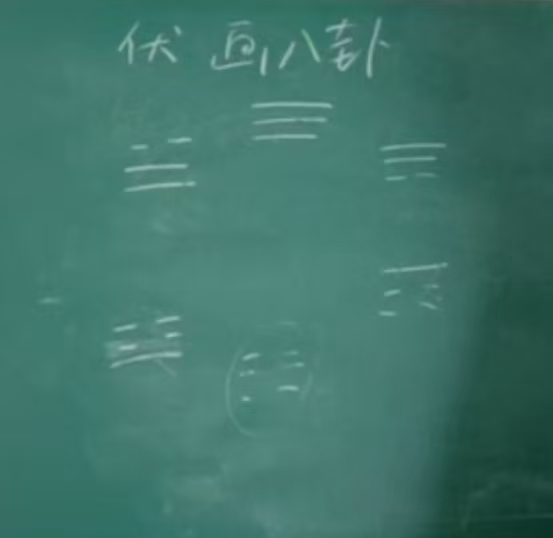 伏 画八卦